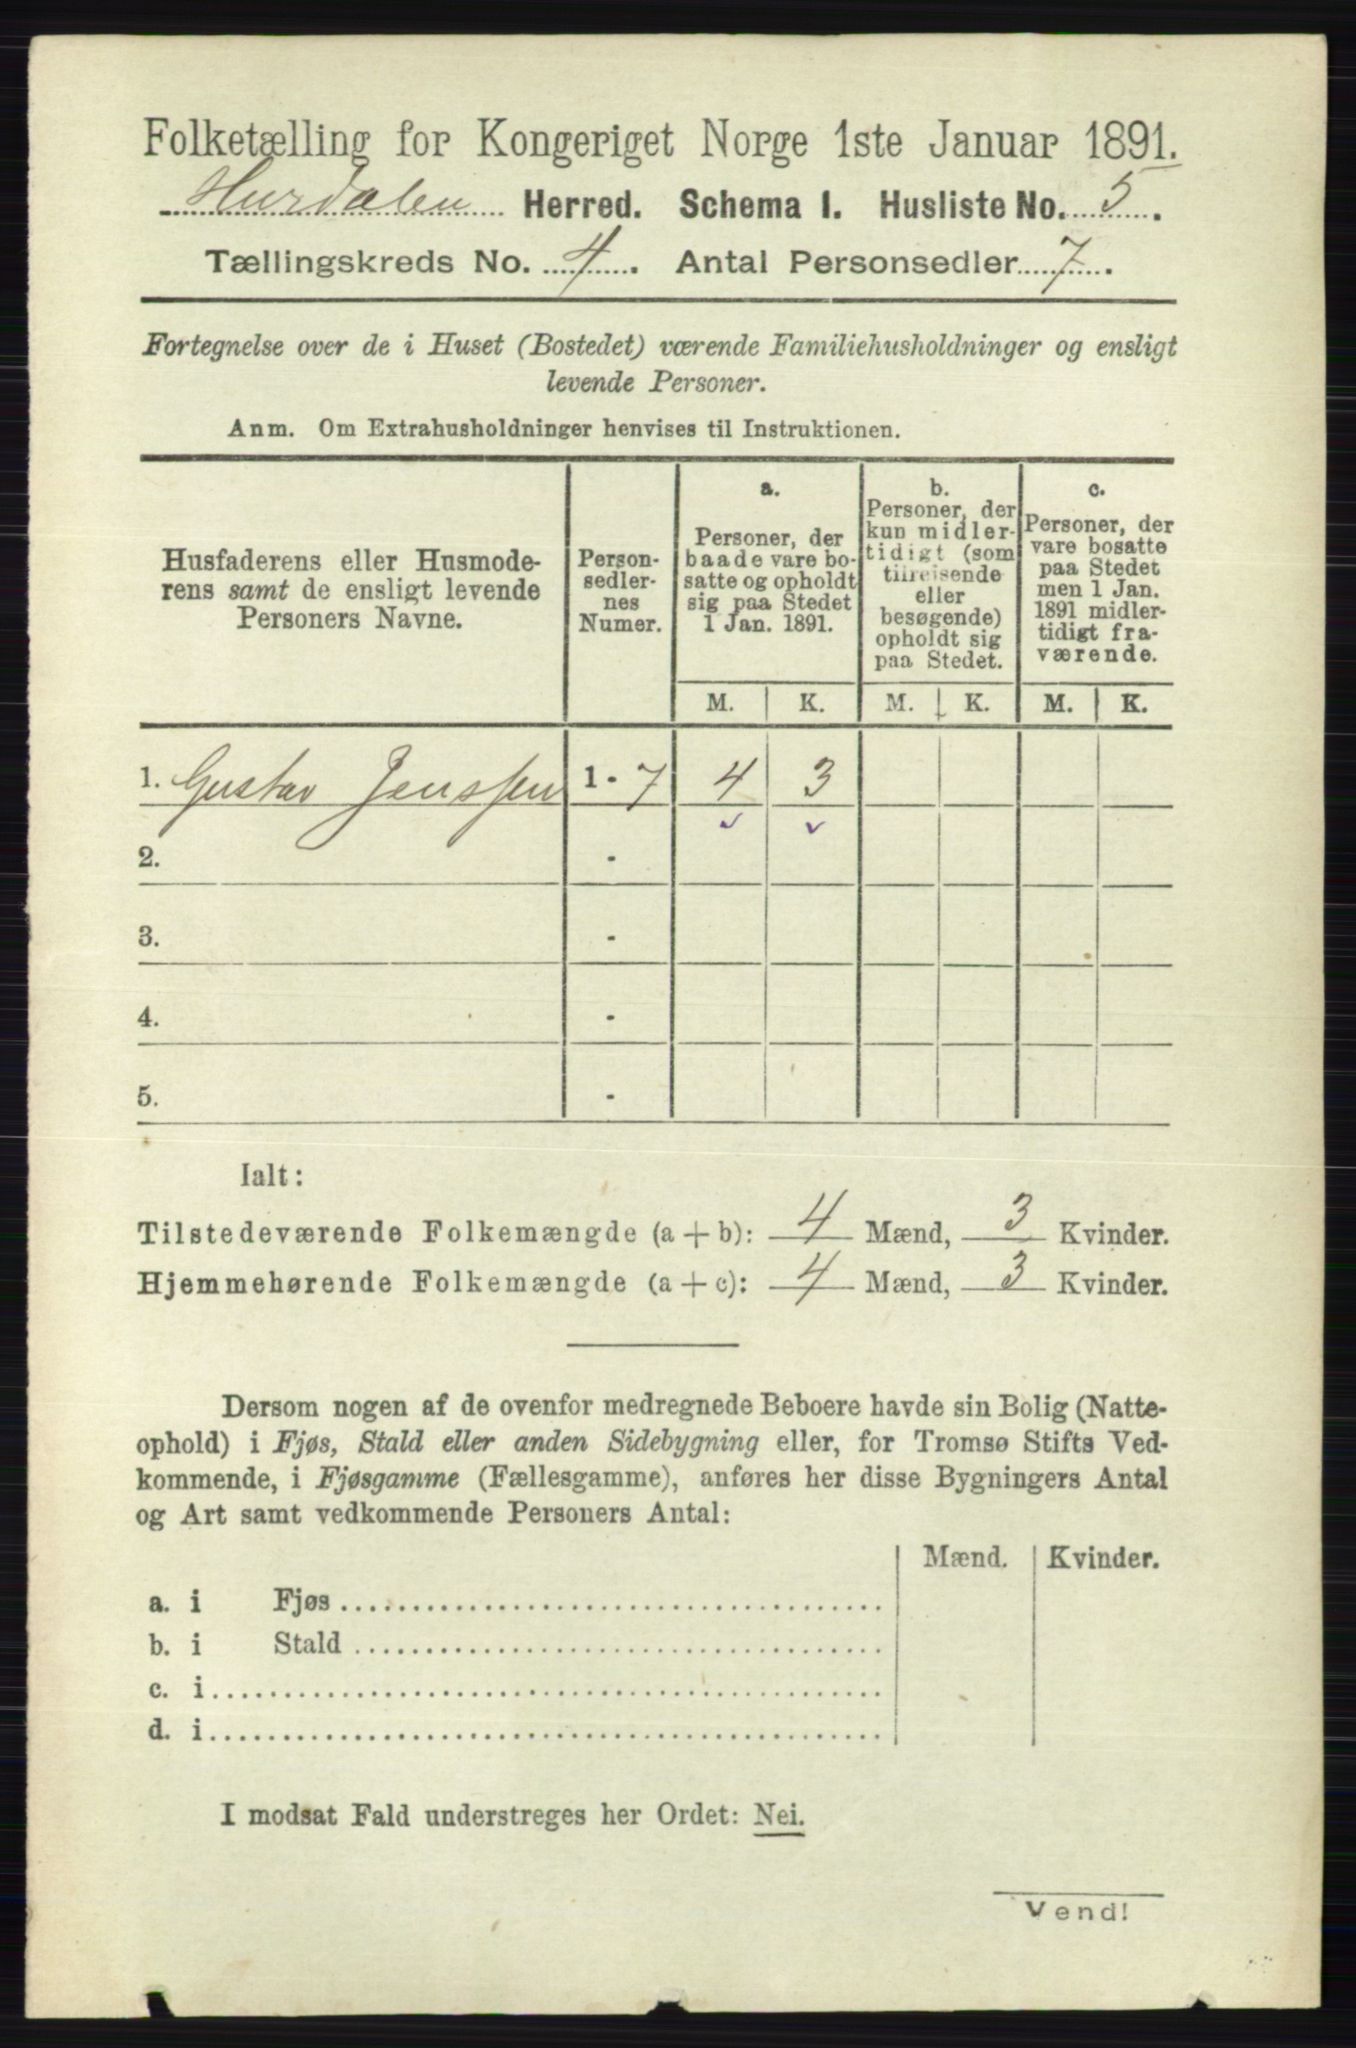 Folketælling for Kongeriget Norge 1ste Januar 1891.
Hurdalen Herred. Schema I. Husliste No. 5.
Tællingskreds No. 4. Antal Personsedler 7.
Fortegnelse over de i Huset (Bostedet) værende Familiehusholdninger og ensligt
levende Personer.
Anm. Om Extrahusholdninger henvises til Instruktionen.
Husfaderens eller Husmode-
rens samt de ensligt levende
Personers Navne.
Person-
sedler-
nes
Numer.
a.
Personer, der
baade vare bo-
satte og opholdt
sig paa Stedet
1 Jan. 1891.
b.
Personer, der
kun midler-
tidigt (som
tilreisende
eller
besøgende)
opholdt sig
paa Stedet.
c.
Personer, der
vare bosatte
paa Stedet
men 1 Jan.
1891 midler-
tidigt fra-
værende.
M. K. M. K. M. K.
1. Gustav Jenssen 1 - 7 4 3
2. -
3. -
4. -
5. -
Ialt:
Tilstedeværende Folkemængde (a + b): 4 Mænd, 3 Kvinder.
Hjemmehørende Folkemængde (a + c): 4 Mænd, 3 Kvinder.
Dersom nogen af de ovenfor medregnede Beboere havde sin Bolig (Natte-
ophold) i Fjøs, Stald eller anden Sidebygning eller, for Tromsø Stifts Ved-
kommende, i Fjøsgamme (Fællesgamme), anføres her disse Bygningers Antal
og Art samt vedkommende Personers Antal:
Mænd. Kvinder.
a. i Fjøs
b. i Stald
c. i
d. i
I modsat Fald understreges her Ordet: Nei.
Vend!